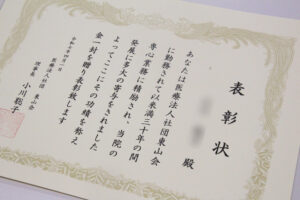 表彰状
殿
あなたは医療法人社団東山会
に勤務されて以来満三十年の間
専心業務に精励され、当院の
発展に多大の寄与をされました
よってここにその功績を称え
金一封を贈り表彰致します
令和元年四月一日
医療法人社団 東山会
理事長 小川聡子